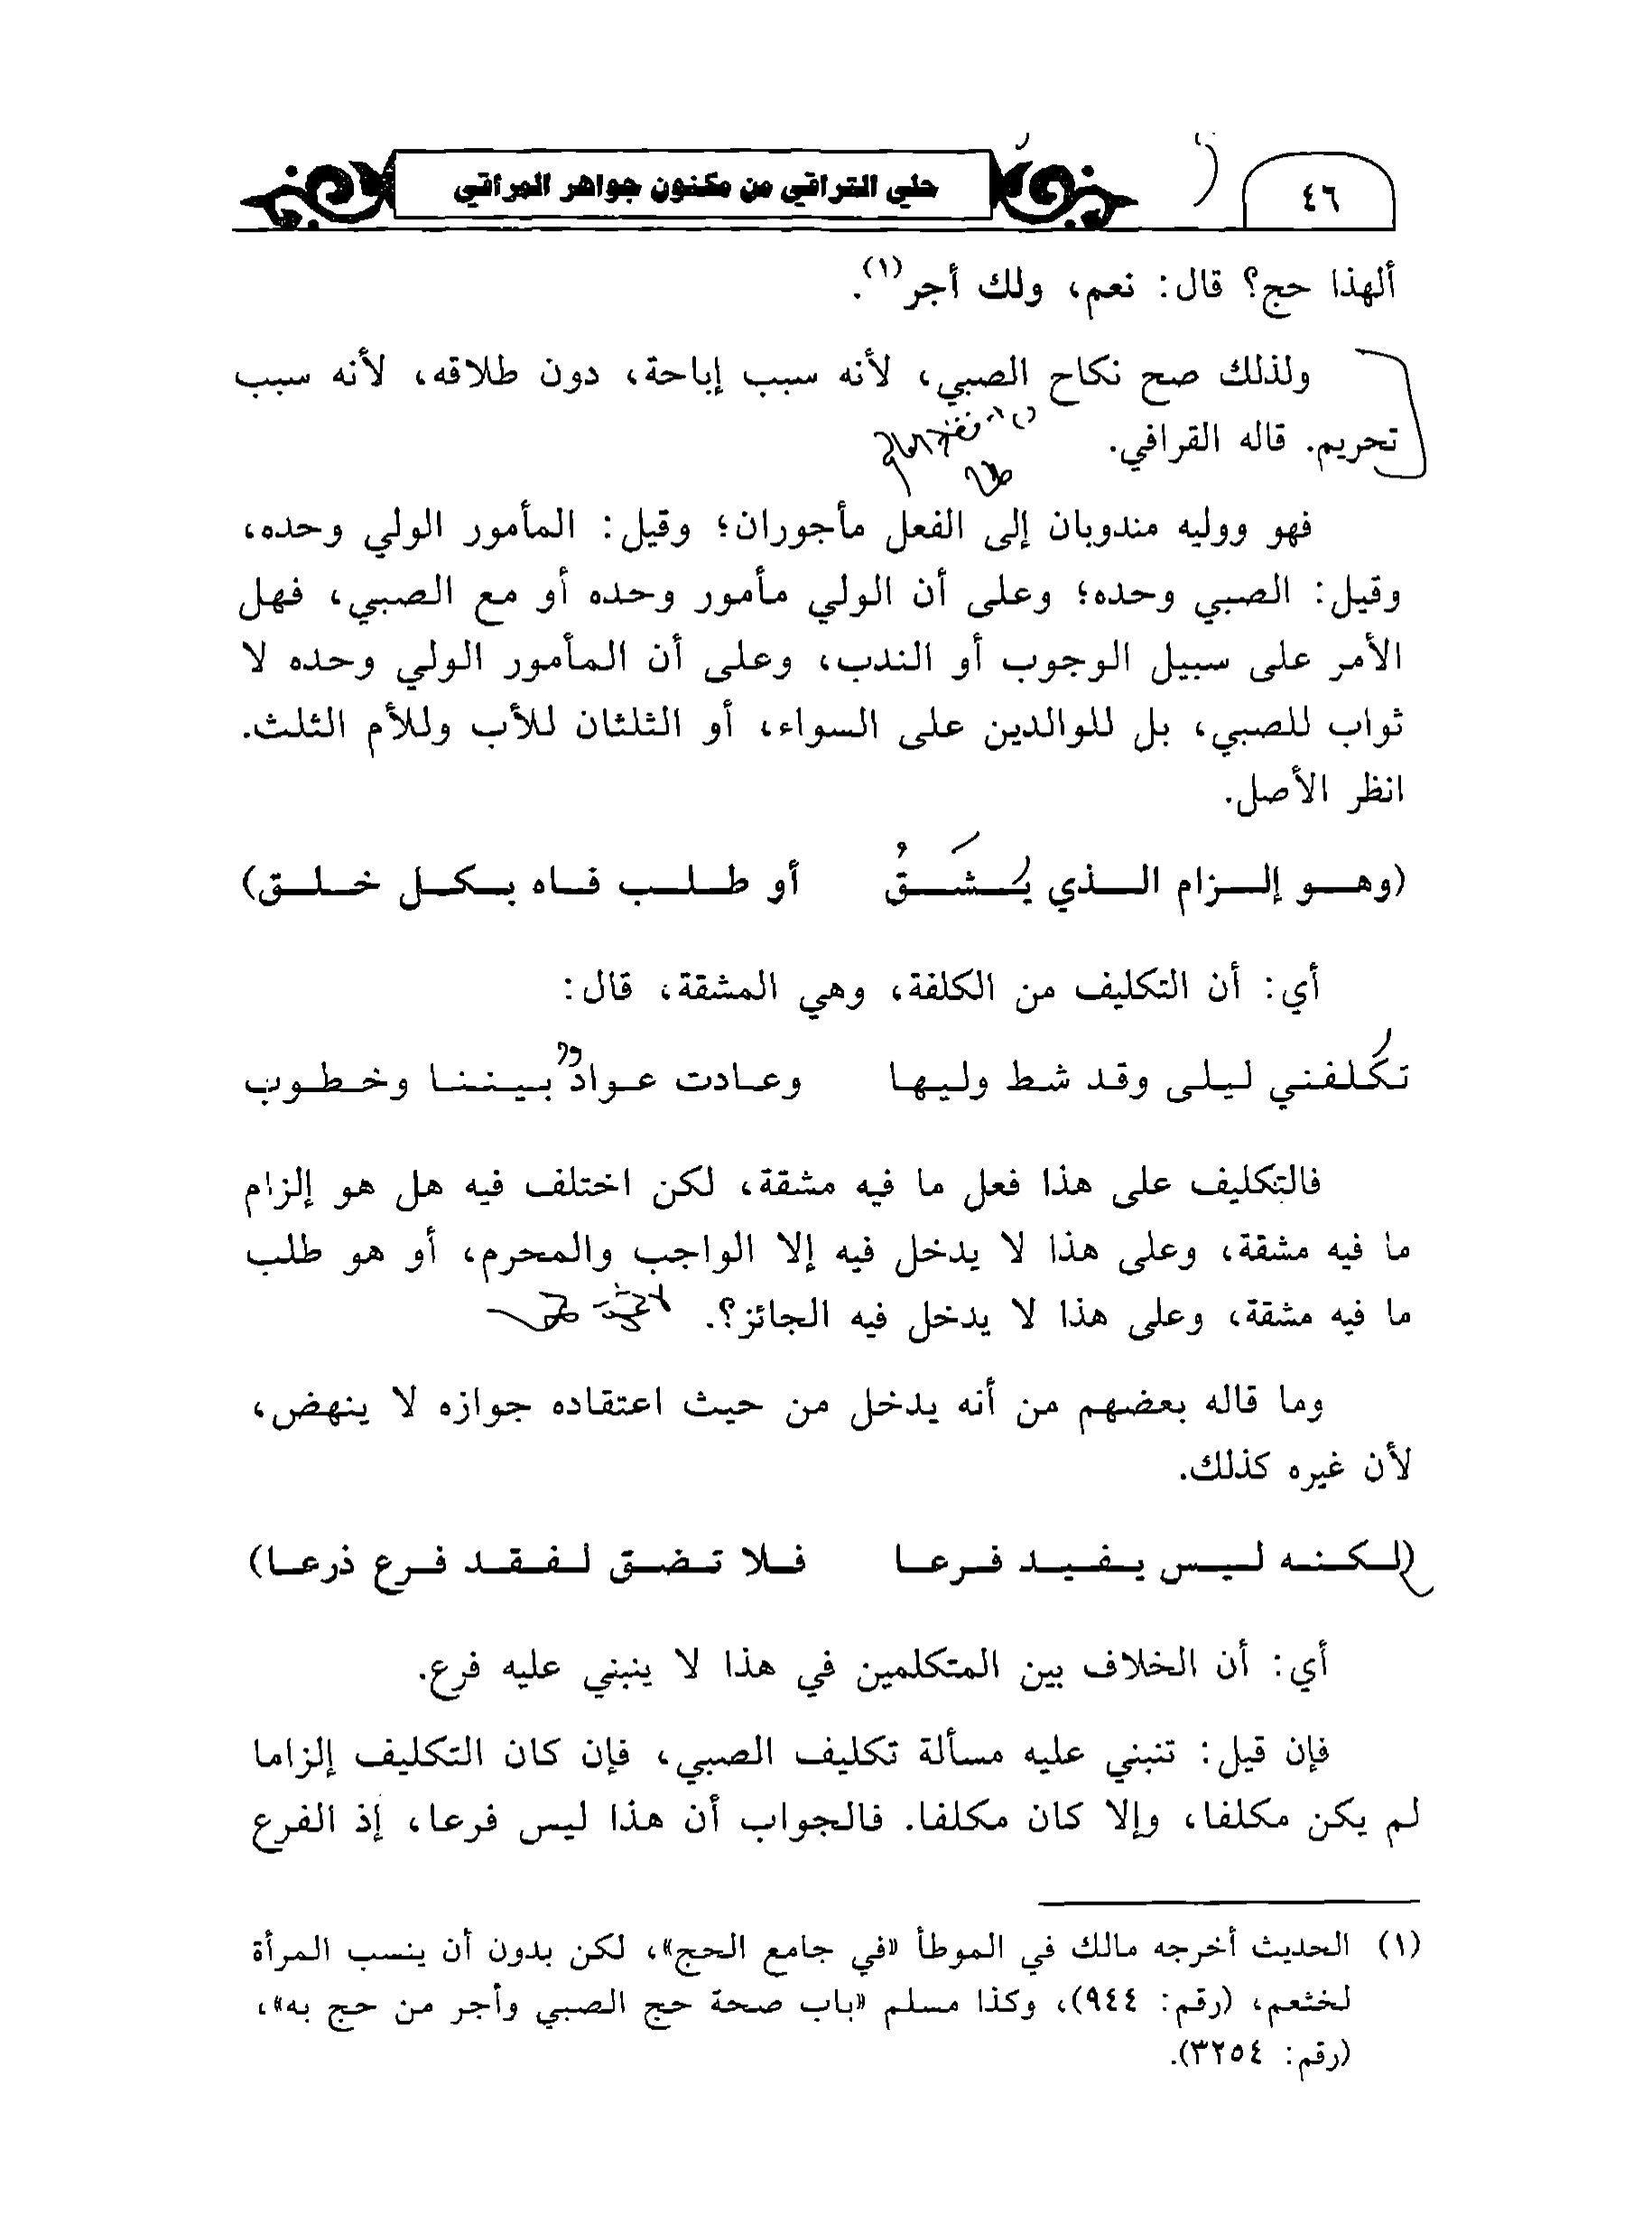 ٤٦
حلي التراقي من مكنون جواهر المراقي
ألهذا حج؟ قال: نعم، ولك أجر(١).
ولذلك صح نكاح الصبي، لأنه سبب إباحة، دون طلاقه، لأنه سبب
تحريم. قاله القرافي.
فهو ووليه مندوبان إلى الفعل مأجوران؛ وقيل: المأمور الولي وحده،
وقيل: الصبي وحده؛ وعلى أن الولي مأمور وحده أو مع الصبي، فهل
الأمر على سبيل الوجوب أو الندب، وعلى أن المأمور الولي وحده لا
ثواب للصبي، بل للوالدين على السواء، أو الثلثان للأب وللأم الثلث.
انظر الأصل.
(وهو إلزام الذي يَشُقُّ أو طلب فاه بكل خلق)
أي: أن التكليف من الكلفة، وهي المشقة، قال:
تكلفني ليلى وقد شط وليها وعادت عواد بيننا وخطوب
فالتكليف على هذا فعل ما فيه مشقة، لكن اختلف فيه هل هو إلزام
ما فيه مشقة، وعلى هذا لا يدخل فيه إلا الواجب والمحرم، أو هو طلب
ما فيه مشقة، وعلى هذا لا يدخل فيه الجائز؟.
وما قاله بعضهم من أنه يدخل من حيث اعتقاده جوازه لا ينهض،
لأن غيره كذلك.
(لكنه ليس يفيد فرعا فلا تضق لفقد فرع ذرعا)
أي: أن الخلاف بين المتكلمين في هذا لا ينبني عليه فرع.
فإن قيل: تنبني عليه مسألة تكليف الصبي، فإن كان التكليف إلزاما
لم يكن مكلفا، وإلا كان مكلفا. فالجواب أن هذا ليس فرعا، إذ الفرع
(١) الحديث أخرجه مالك في الموطأ «في جامع الحج»، لكن بدون أن ينسب المرأة
لخثعم، (رقم: ٩٤٤)، وكذا مسلم «باب صحة حج الصبي وأجر من حج به»،
(رقم: ٣٢٥٤).